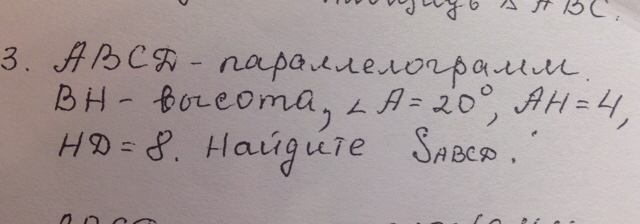 △ ABC.
3. ABCD - параллелограмм.
BH - высота, ∠A = 20°, AH = 4,
HD = 8. Найдите SABCD.